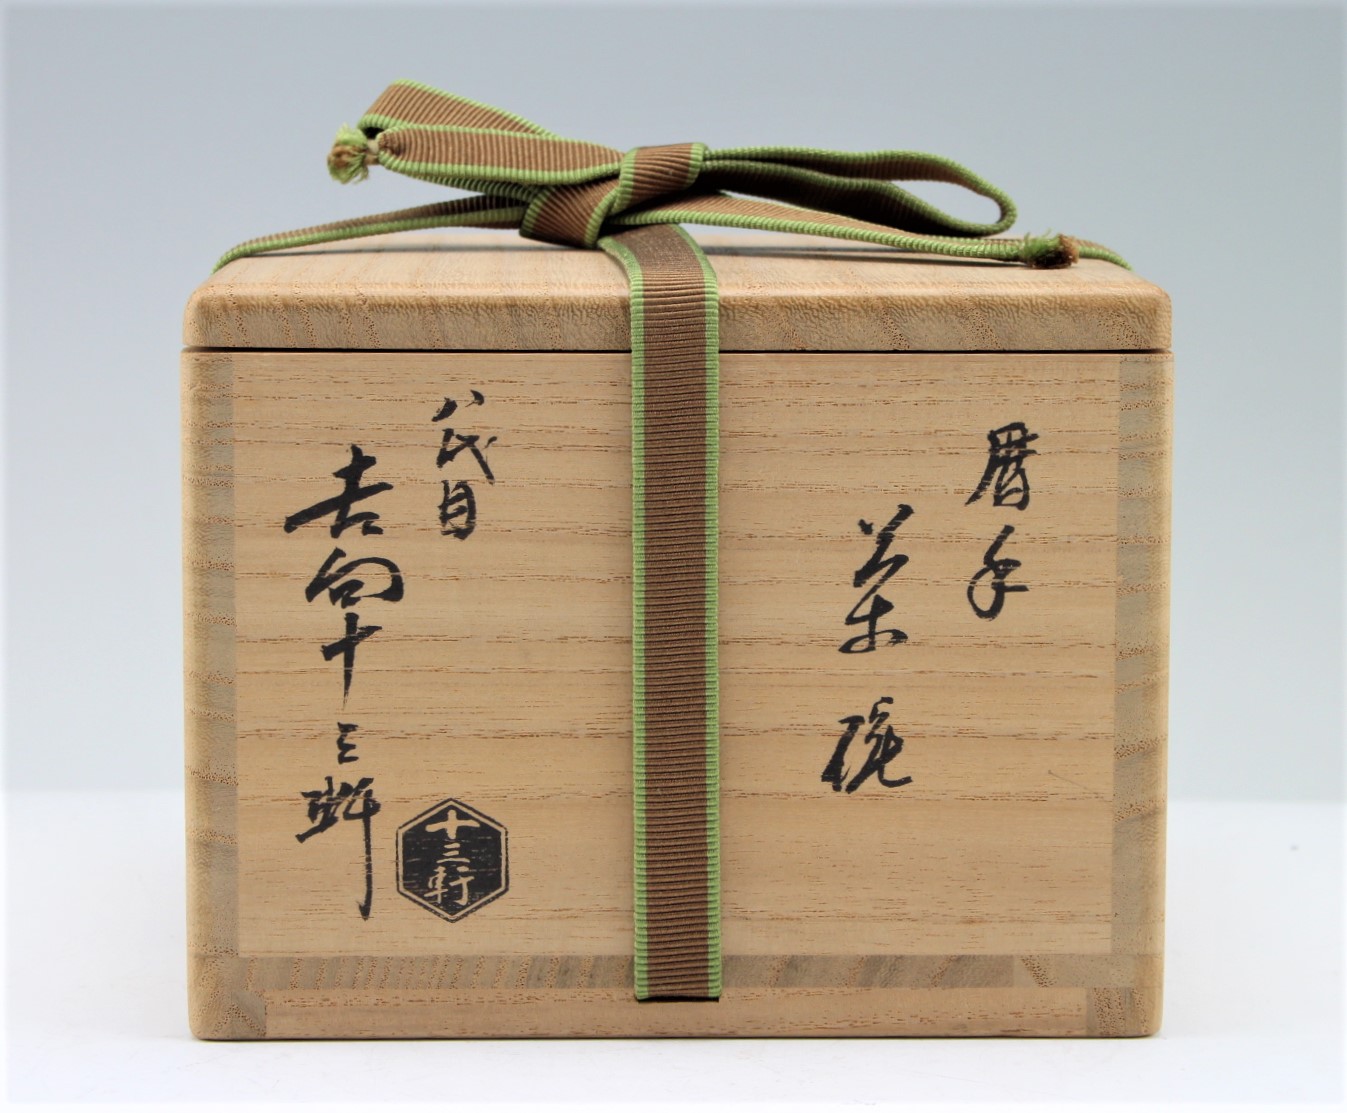 暦手
茶碗
八代目
吉向十三軒
十三軒